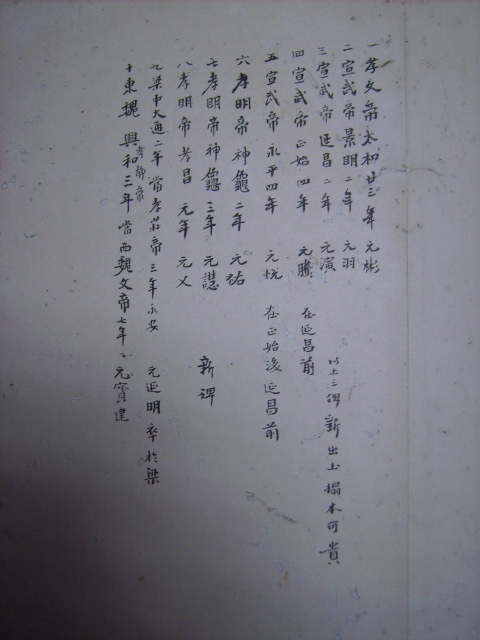 一 孝文帝 太初廿三年 元彬
二 宣武帝 景明二年 元羽
三 宣武帝 延昌二年 元演
以上三碑新出土搨本可貴
四 宣武帝 正始四年 元騰 在延昌前
五 宣武帝 永平四年 元悦 在正始後延昌前
六 孝明帝 神龜二年 元祐
七 孝明帝 神龜三年 元譿 新碑
八 孝明帝 孝昌元年 元乂
九 梁中大通二年 當孝莊帝三年永安 元延明卒於梁
十 東魏 孝静帝 興和三年 當西魏文帝七年 元寶建